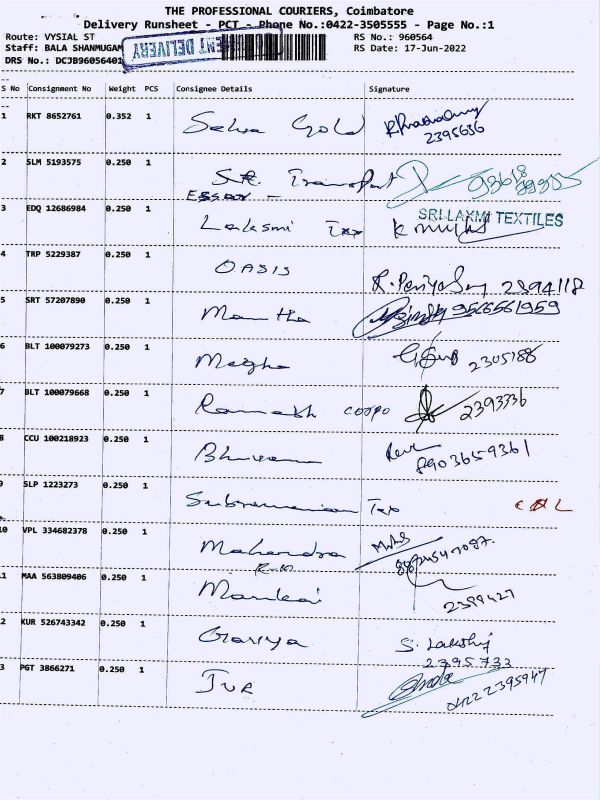 THE PROFESSIONAL COURIERS, Coimbatore
Delivery Runsheet - PCT - Phone No.:0422-3505555 - Page No.:1
Route: VYSIAL ST RS No.: 960564
Staff: BALA SHANMUGAM RS Date: 17-Jun-2022
DRS No.: DCJB96056401
DELIVERY
S No Consignment No Weight PCS Consignee Details Signature
1 RKT 8652761 0.352 1 Selva Gold
2395636
2 SLM 5193575 0.250 1 SR Transport 93618
ESSDR
3 EDQ 12686984 0.250 1 Lalasmi Tex SRI LAXMI TEXTILES
4 TRP 5229387 0.250 1 OASIS
R. Periyasamy 2394118
5 SRT 57207890 0.250 1 Mamtha 9566561959
6 BLT 100079273 0.250 1 Megha 2305188
7 BLT 100079668 0.250 1 Ramesh corpo 2393336
8 CCU 100218923 0.250 1 Bhuvan
8903659361
9 SLP 1223273 0.250 1 Subramanian Tex
10 VPL 334682378 0.250 1 Mahendra
11 MAA 563809406 0.250 1 Mankai
2399427
12 KUR 526743342 0.250 1 Gariya S. Lakshmi
2395733
13 PGT 3866271 0.250 1 JVR
0422 2395947